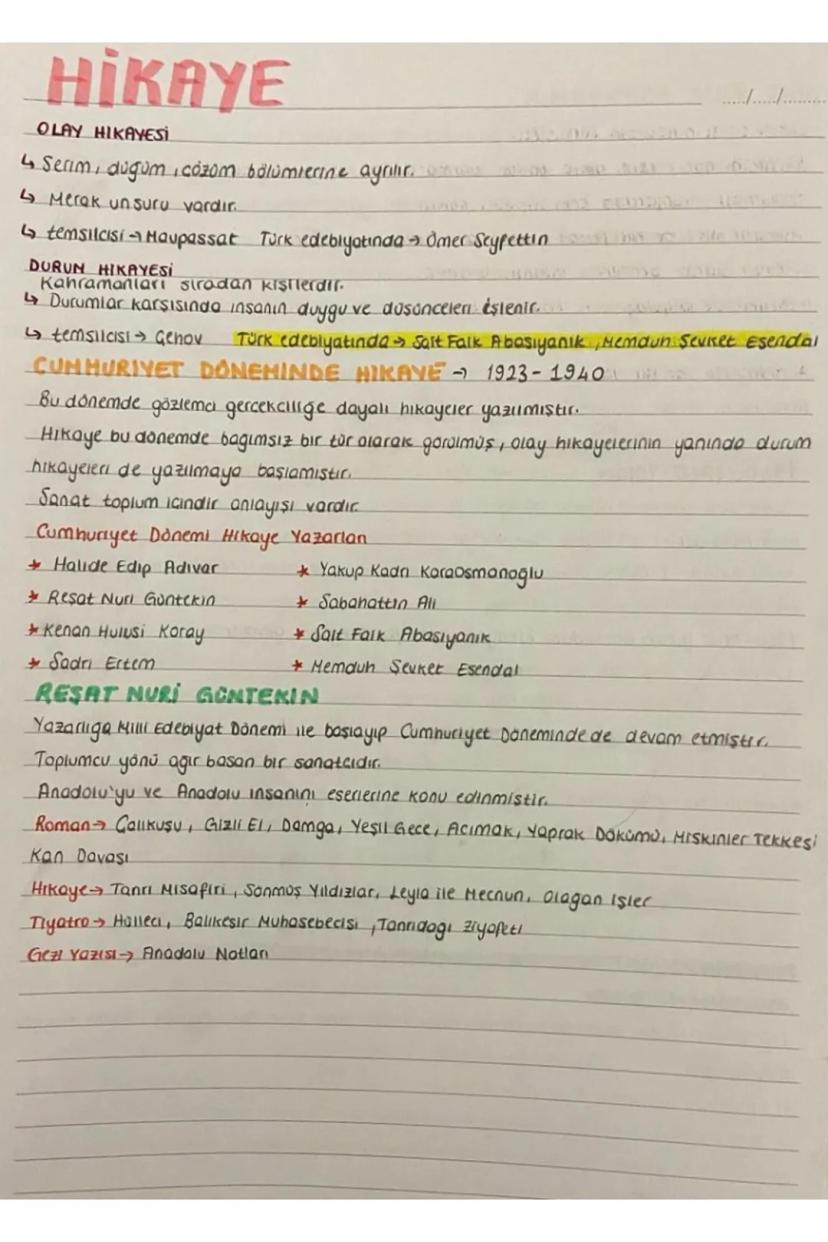 HİKAYE
...../...../.........
OLAY HIKAYESİ
↳ Serim, düğüm, çözüm bölümlerine ayrılır.
↳ Merak unsuru vardır.
↳ temsilcisi → Maupassat Türk edebiyatında → Ömer Seyfettin
DURUN HİKAYESİ
Kahramanları sıradan kişilerdir.
↳ Durumlar karşısında insanın duygu ve düşünceleri işlenir.
↳ temsilcisi → Çehov Türk edebiyatında → Sait Faik Abasıyanık, Memduh Şevket Esendal
CUMHURİYET DÖNEMİNDE HİKAYE → 1923-1940
Bu dönemde gözlemci gerçekçiliğe dayalı hikayeler yazılmıştır.
Hikaye bu dönemde bağımsız bir tür olarak görülmüş, olay hikayelerinin yanında durum
hikayeleri de yazılmaya başlamıştır.
Sanat toplum içindir anlayışı vardır.
Cumhuriyet Dönemi Hikaye Yazarları
* Halide Edip Adıvar * Yakup Kadri Karaosmanoğlu
* Reşat Nuri Güntekin * Sabahattin Ali
* Kenan Hulusi Koray * Sait Faik Abasıyanık
* Sadri Ertem * Memduh Şevket Esendal
REŞAT NURİ GÜNTEKİN
Yazarlığa Milli Edebiyat Dönemi ile başlayıp Cumhuriyet Döneminde de devam etmiştir.
Toplumcu yönü ağır basan bir sanatçıdır.
Anadolu'yu ve Anadolu insanını eserlerine konu edinmiştir.
Roman → Çalıkuşu, Gizli El, Damga, Yeşil Gece, Acımak, Yaprak Dökümü, Miskinler Tekkesi
Kan Davası
Hikaye → Tanrı Misafiri, Sönmüş Yıldızlar, Leyla ile Mecnun, Olağan İşler
Tiyatro → Hülleci, Balıkesir Muhasebecisi, Tanrıdağı Ziyafeti
Gezi Yazısı → Anadolu Notları